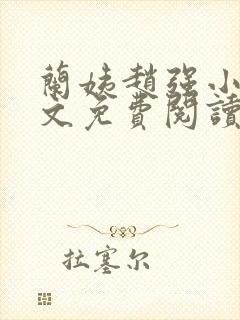 蘭姨趙强小
文免費閱讀
拉塞尔